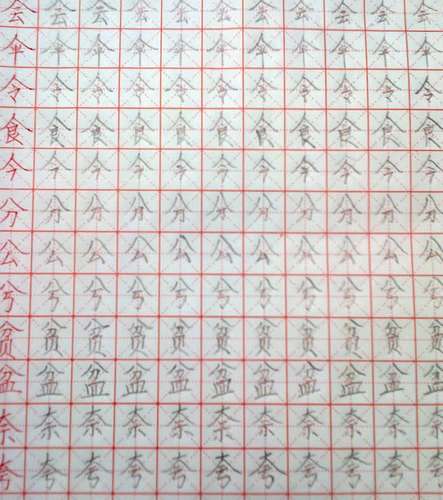 会会会会会会会会会会会
伞伞伞伞伞伞伞伞伞伞伞
令令令令令令令令令令令
食食食食食食食食食食食
今今今今今今今今今今今
分分分分分分分分分分分
公公公公公公公公公公公
兮兮兮兮兮兮兮兮兮兮兮
贫贫贫贫贫贫贫贫贫贫贫
盆盆盆盆盆盆盆盆盆盆盆
奈奈奈奈奈奈奈奈奈奈奈
夸夸夸夸夸夸夸夸夸夸夸